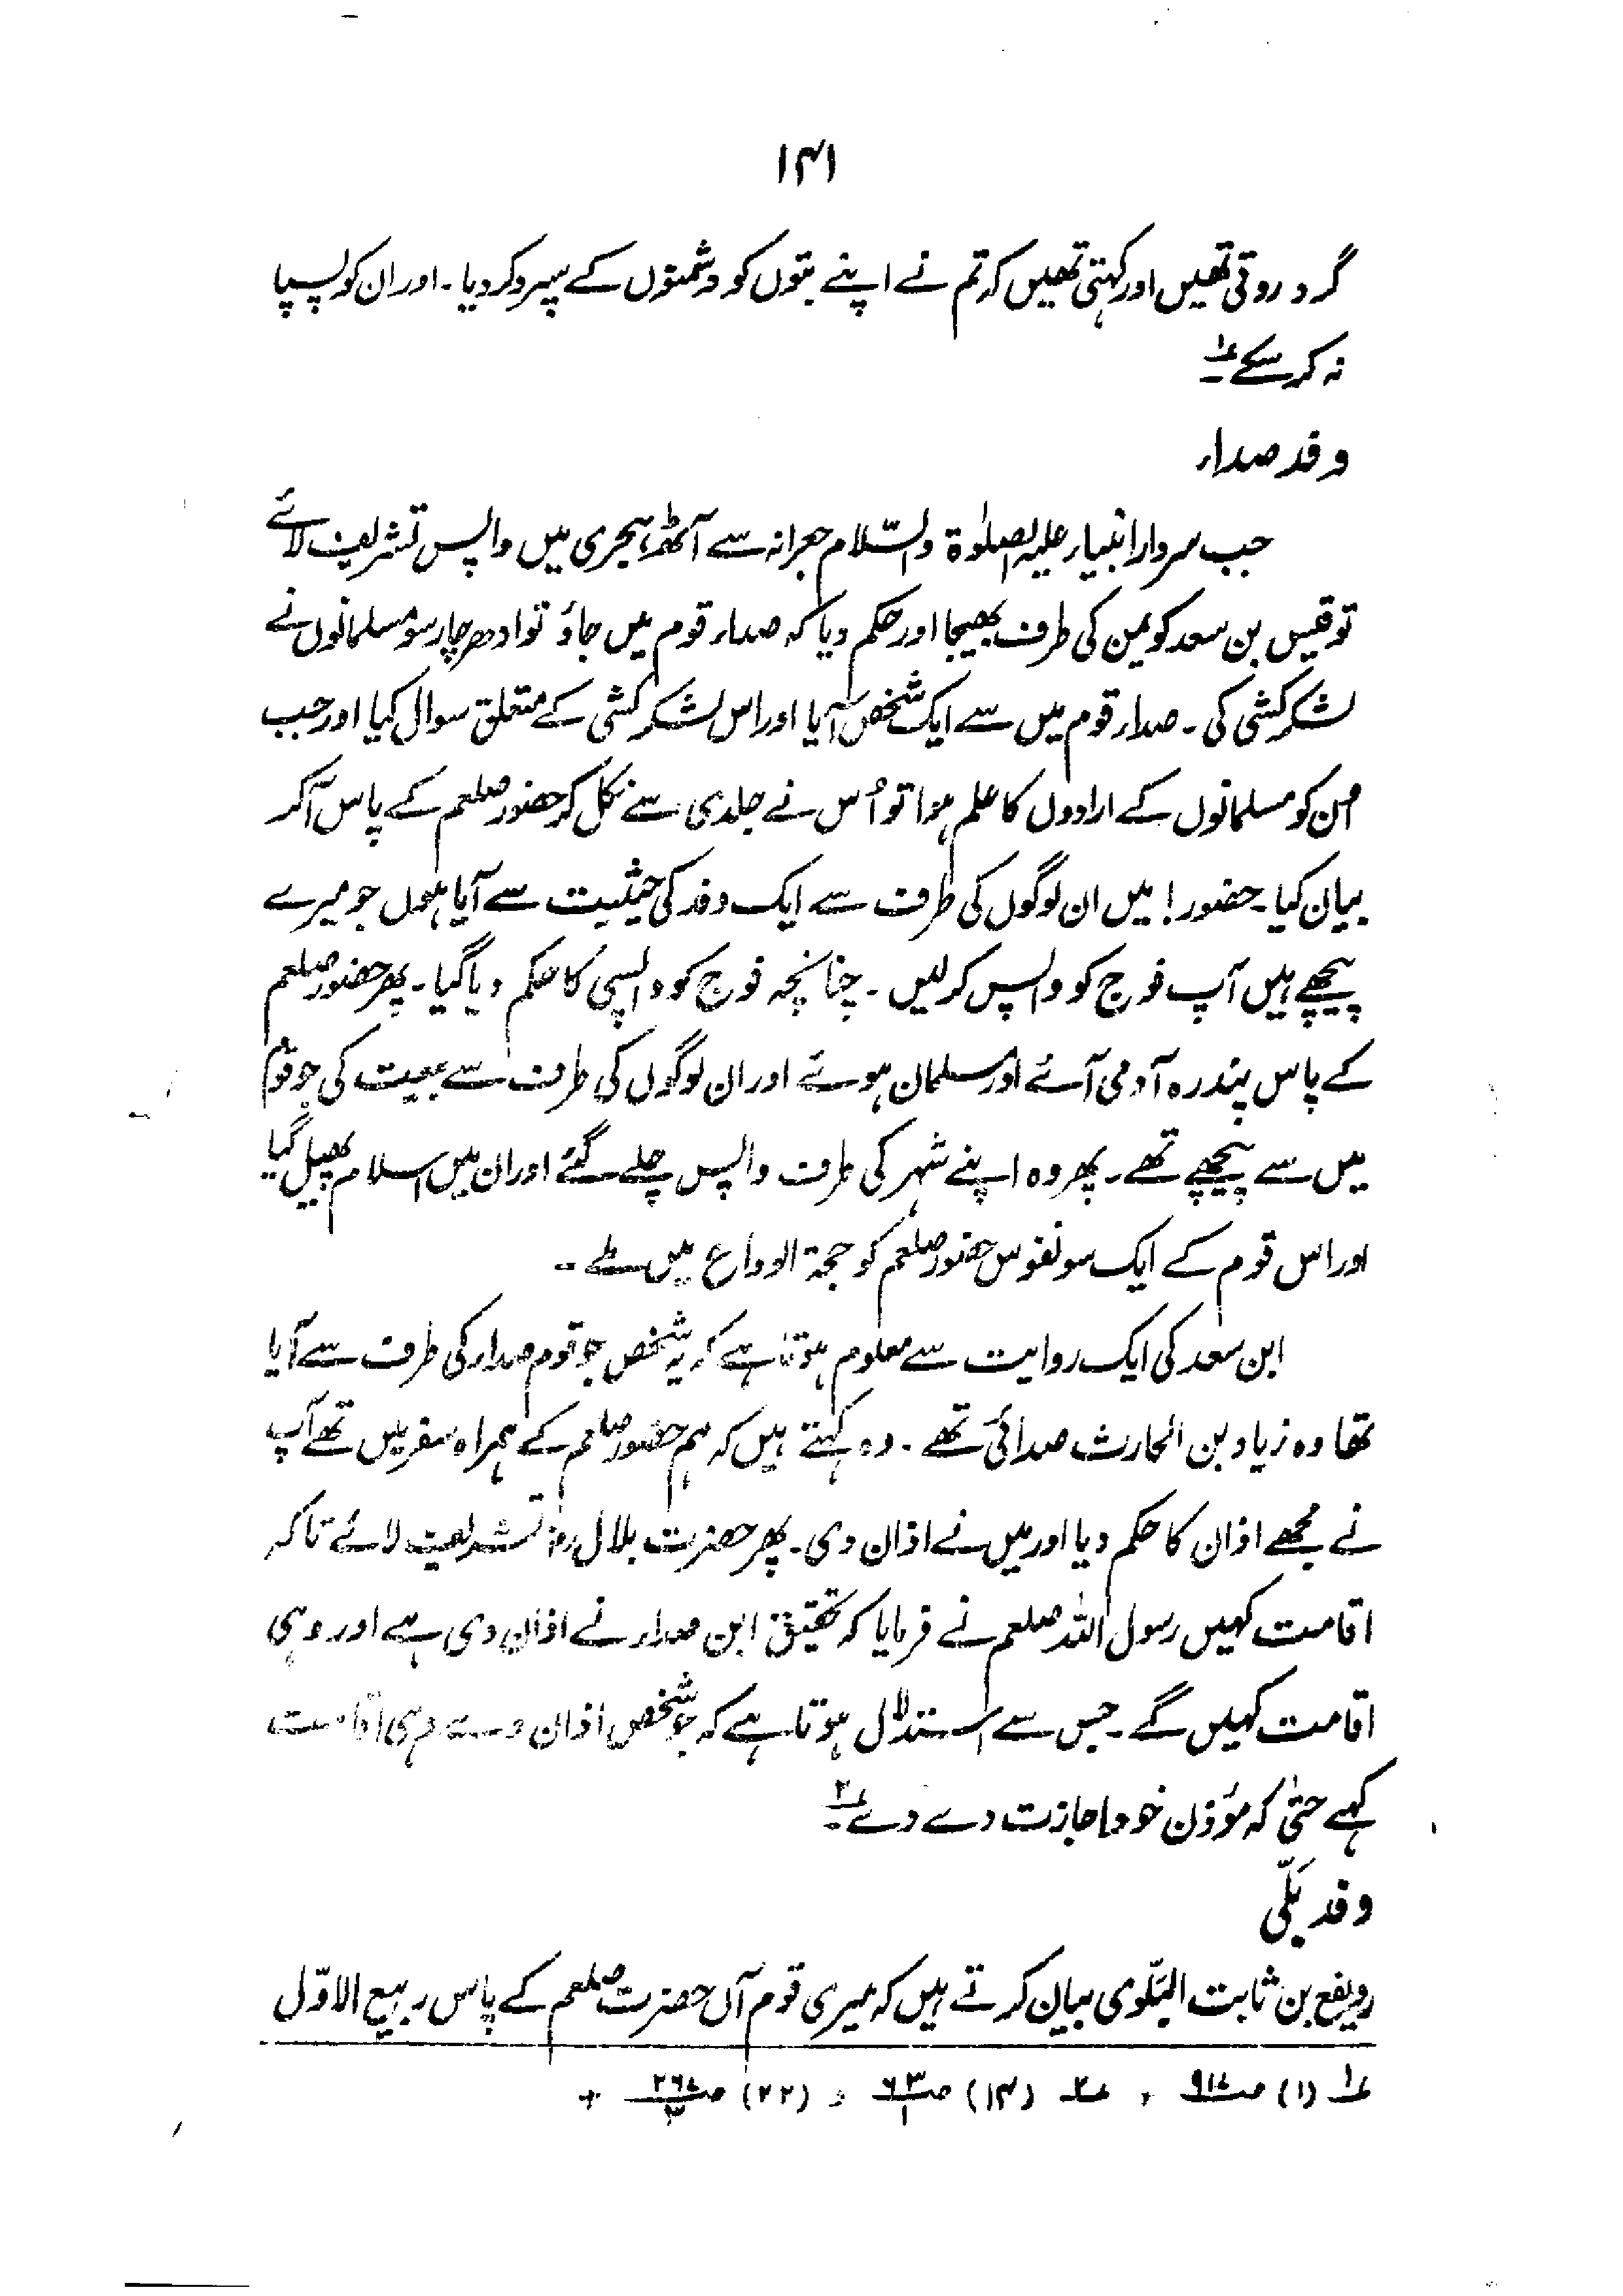 ۱۴۱
گرد روتی تھیں اور کہتی تھیں کہ تم نے اپنے بتوں کو دشمنوں کے سپرد کر دیا۔ اور ان کو پسپا
نہ کر سکے ۱؎
وفد صداء
جب سردار انبیاء علیہ الصلوٰۃ والسّلام جعرانہ سے آٹھ ہجری میں واپس تشریف لائے
تو قیس بن سعد کو یمن کی طرف بھیجا اور حکم دیا کہ صداء قوم میں جاؤ تو ادھر چار سو مسلمانوں نے
لشکر کشی کی۔ صداء قوم میں سے ایک شخص آیا اور اس لشکر کشی کے متعلق سوال کیا اور جب
اُن کو مسلمانوں کے ارادوں کا علم ہؤا تو اُس نے جلدی سے نکل کر حضور صلعم کے پاس آکر
بیان کیا۔ حضور! میں ان لوگوں کی طرف سے ایک وفد کی حیثیت سے آیا ہوں جو میرے
پیچھے ہیں آپ فوج کو واپس کر لیں۔ چنانچہ فوج کو واپسی کا حکم دیا گیا۔ پھر حضور صلعم
کے پاس پندرہ آدمی آئے اور مسلمان ہوئے اور ان لوگوں کی طرف سے بیعت کی جو قوم
میں سے پیچھے تھے۔ پھر وہ اپنے شہر کی طرف واپس چلے گئے اور ان میں اسلام پھیل گیا
اور اس قوم کے ایک سو نفوس حضور صلعم کو حجۃ الوداع میں ملے۔
ابن سعد کی ایک روایت سے معلوم ہوتا ہے کہ یہ شخص جو قوم صداء کی طرف سے آیا
تھا وہ زیاد بن الحارث صدائی تھے۔ وہ کہتے ہیں کہ ہم حضور صلعم کے ہمراہ سفر میں تھے آپ
نے مجھے اذان کا حکم دیا اور میں نے اذان دی۔ پھر حضرت بلال رضؓ تشریف لائے تاکہ
اقامت کہیں رسول اللہ صلعم نے فرمایا کہ تحقیق ابن صداء نے اذان دی ہے اور وہی
اقامت کہیں گے۔ جس سے استدلال ہوتا ہے کہ جو شخص اذان دے وہی اقامت
کہے حتیٰ کہ مؤذن خود اجازت دے دے ۲؎۔
وفد بَلّی
رویفع بن ثابت البَلَّوی بیان کرتے ہیں کہ میری قوم آں حضرت صلعم کے پاس ربیع الاوّل
۱؎ (۱) ص۹۱۷ ، ۲؎ (۱۴) ص۶۳/۱ ، (۲۲) ص۲۶۷/۳ +